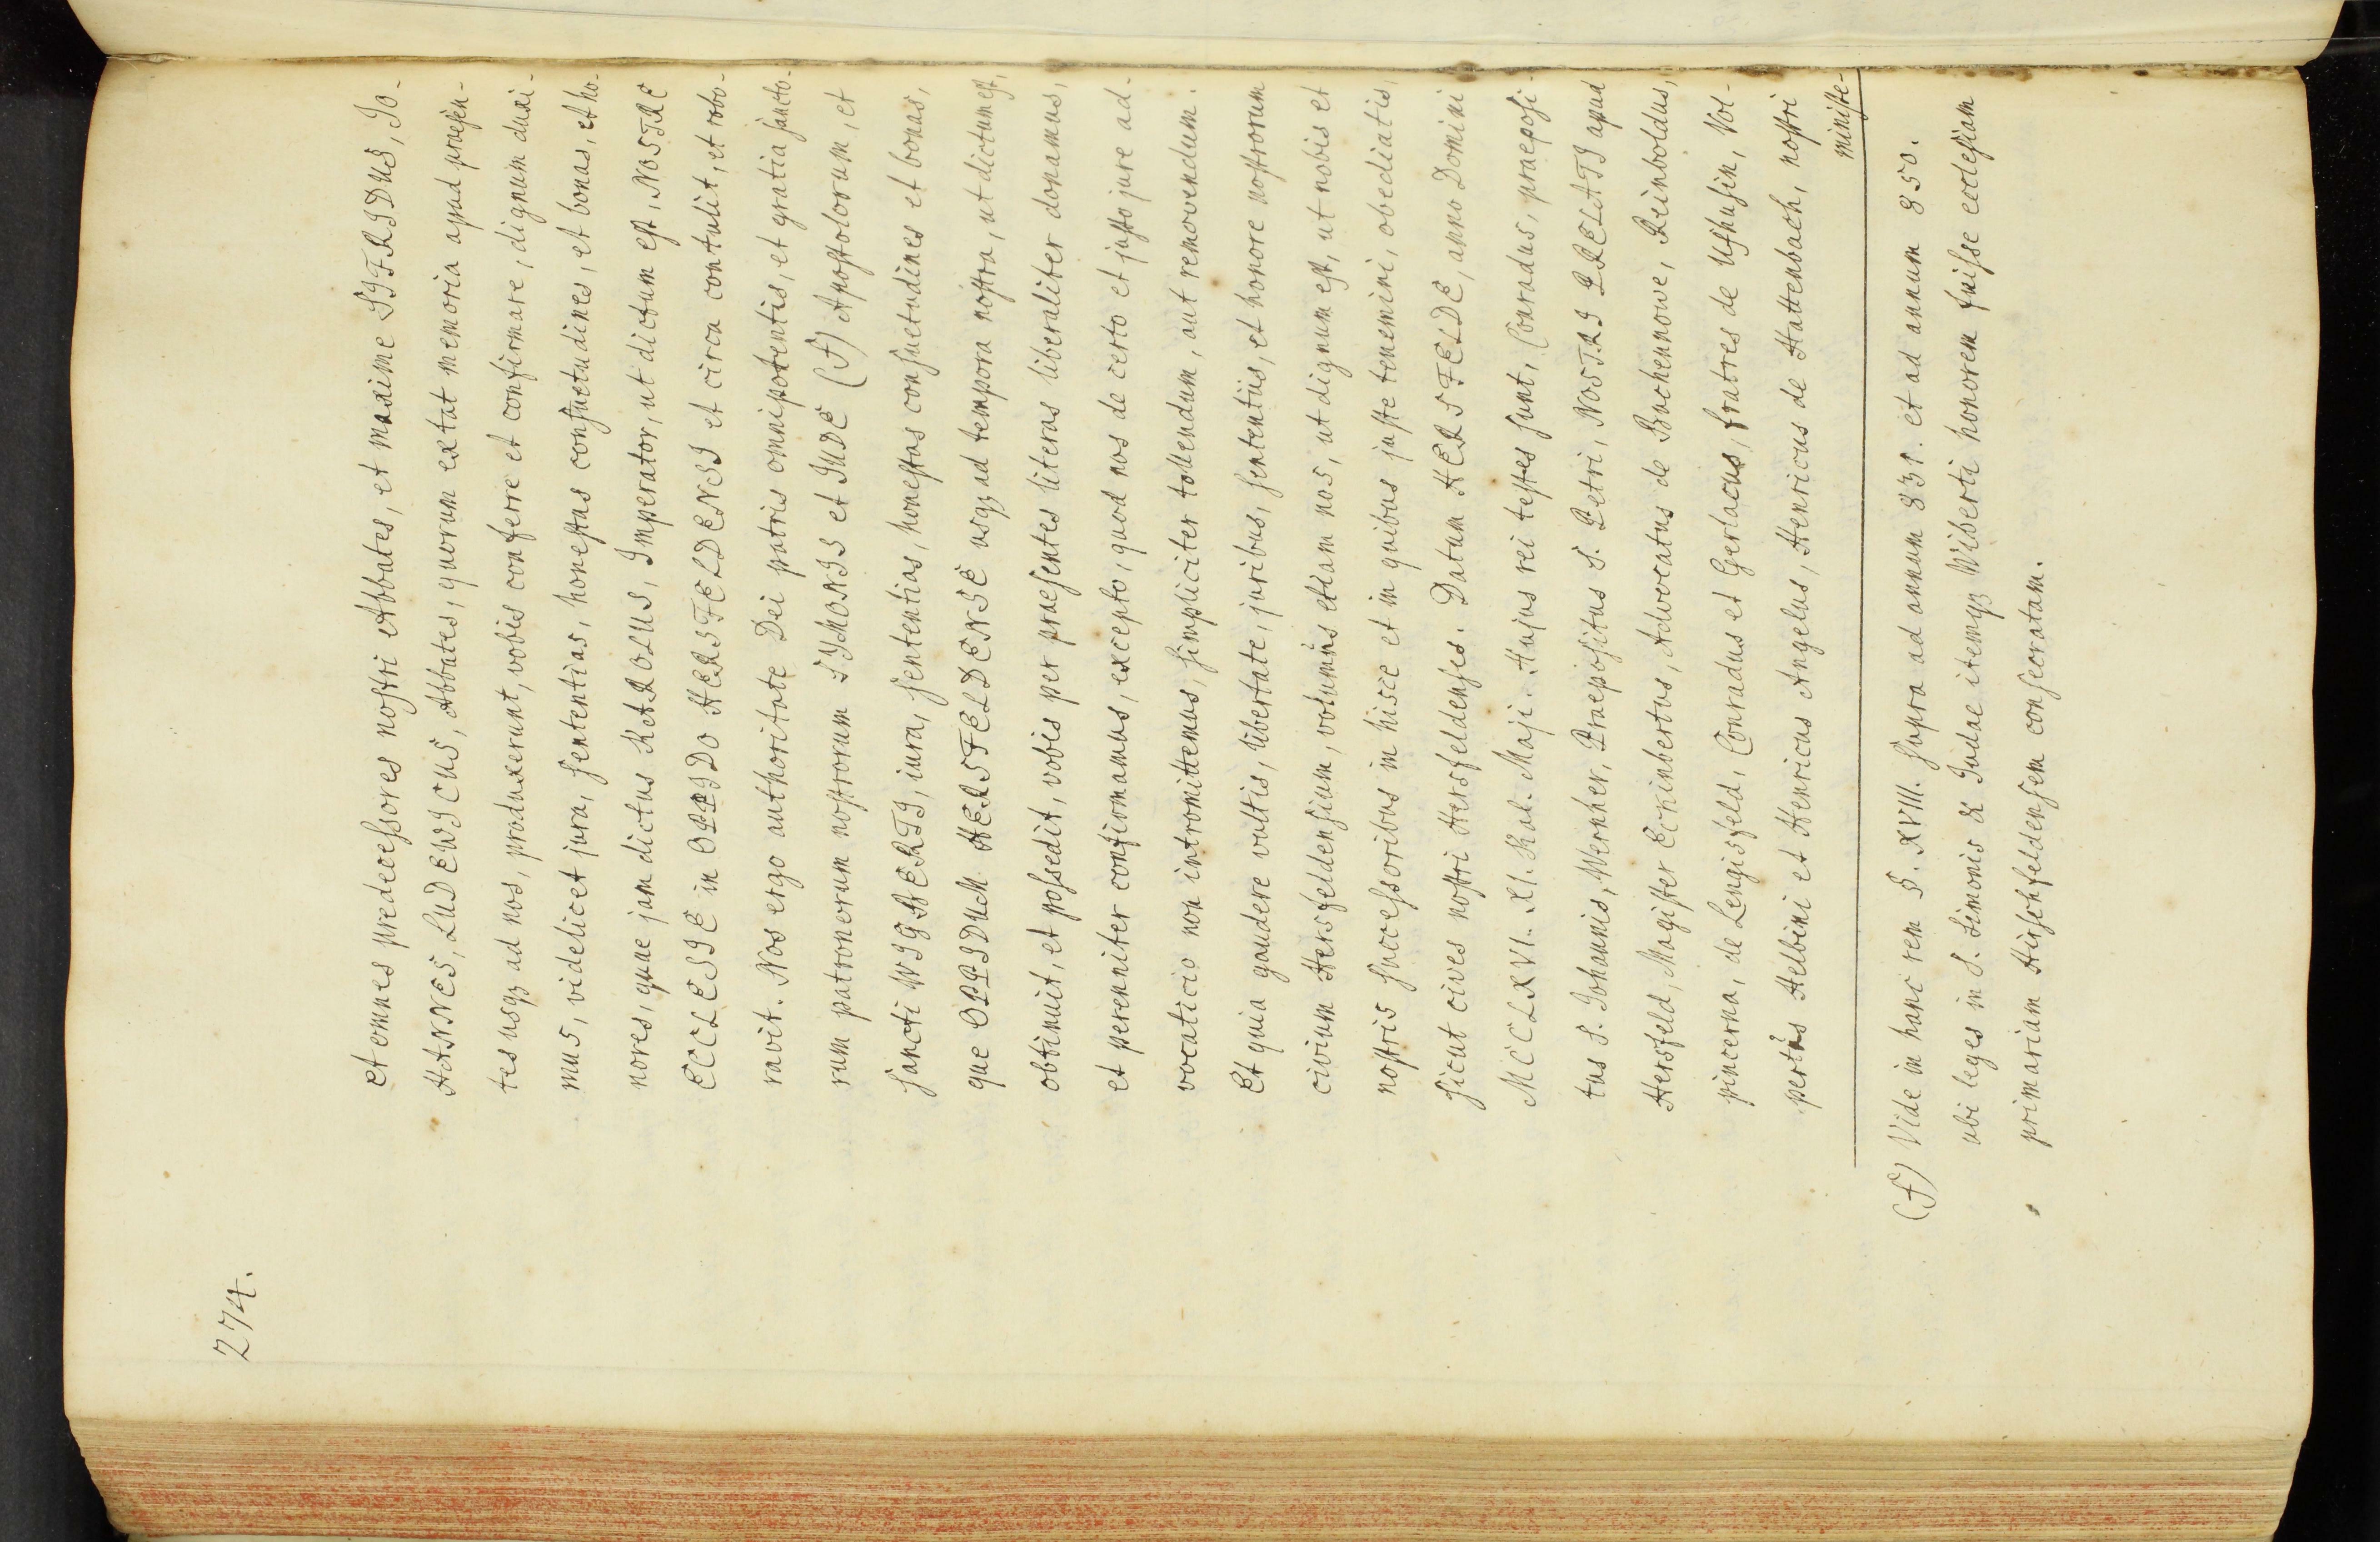 274.
et omnes predecessores nostri Abbates, et maxime SIFRIDUS, Jo-
HANNES, LUDEWICUS, Abbates, quorum extat memoria apud presen-
tes usq3 ad nos, produxerunt, vobis conferre et confirmare, dignum duxi-
mus, videlicet jura, sententias, honestas consuetudines, et bonas, et ho-
nores, quae jam dictus KAROLUS, Imperator, ut dictum est, NOSTRE
ECCLESIE in OPPIDO HERSFELDENSI et circa contulit, et robo-
ravit. Nos ergo authoritate Dei patris omnipotentis, et gratia sancto-
rum patronorum nostrorum SYMONIS et JUDE (f) Apostolorum, et
sancti WIGHERTI, iura, sententias, honestas consuetudines et bonas,
que OPPIDUM HERSFELDENSE usq3 ad tempora nostra, ut dictum est,
obtinuit, et possedit, vobis per praesentes literas liberaliter donamus,
et perenniter confirmamus, excepto, quod nos de certo et justo jure ad-
vocaticio non intromittemus, simpliciter tollendum, aut removendum.
Et quia gaudere vultis, libertate, juribus, sententiis, et honore nostrorum
civium Hersfeldensium, volumus etiam nos, ut dignum est, ut nobis et
nostris successoribus in hisce et in quibus juste tenemini, obediatis,
sicut cives nostri Hersfeldenses. Datum HERSFELDE, anno Domini
MCCLXVI. XI. Kal. Maji. Hujus rei testes sunt, Conradus, praeposi-
tus S. Johannis, Wernher, Praepositus S. Petri, NOSTRI PRELATI apud
Hersfeld, Magister Eckinbertus, Advocatus de Buchennowe, Reinboldus,
pincerna, de Lengisfeld, Conradus et Gerlacus, fratres de Ufhusin, Vol-
pertus Helbini et Henricus Angelus, Henricus de Hattenbach, nostri
ministe-
(f) Vide in hanc rem §. XVIII. supra ad annum 831. et ad annum 850.
ubi leges in S. Simonis & Judae itemq3 Wiberti honorem fuisse ecclesiam
primariam Hirschfeldensem consecratam.